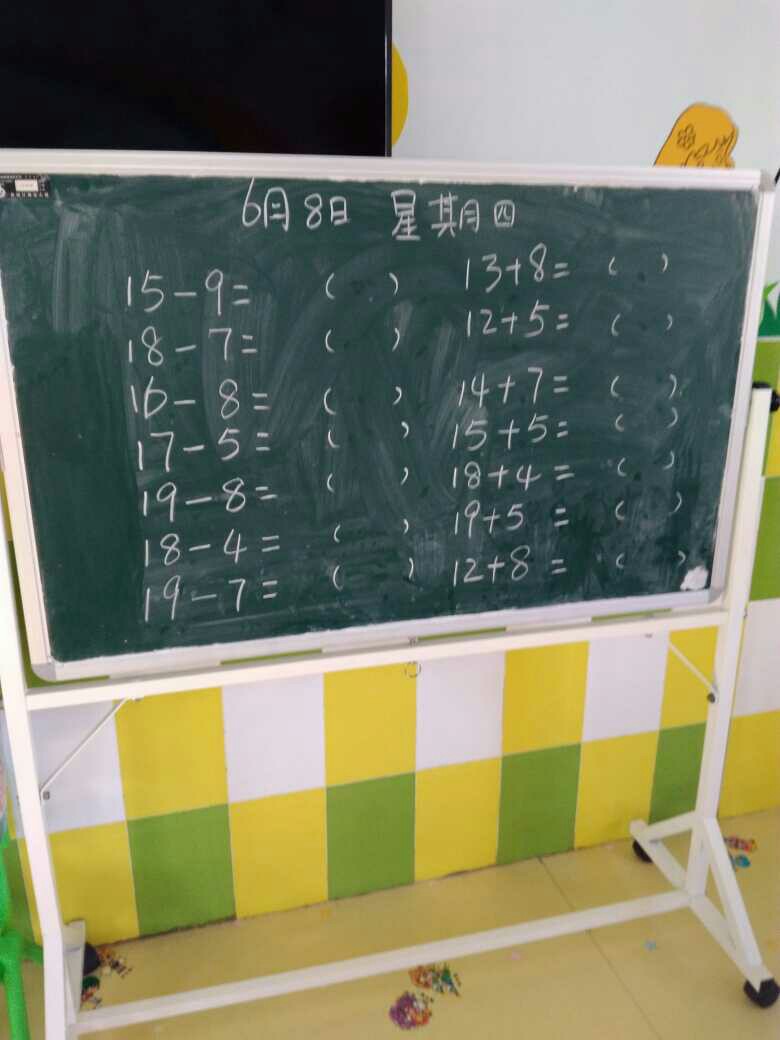 6月8日 星期四
15-9= ( ) 13+8= ( )
18-7= ( ) 12+5= ( )
16-8= ( ) 14+7= ( )
17-5= ( ) 15+5= ( )
19-8= ( ) 18+4= ( )
18-4= ( ) 19+5= ( )
19-7= ( ) 12+8= ( )